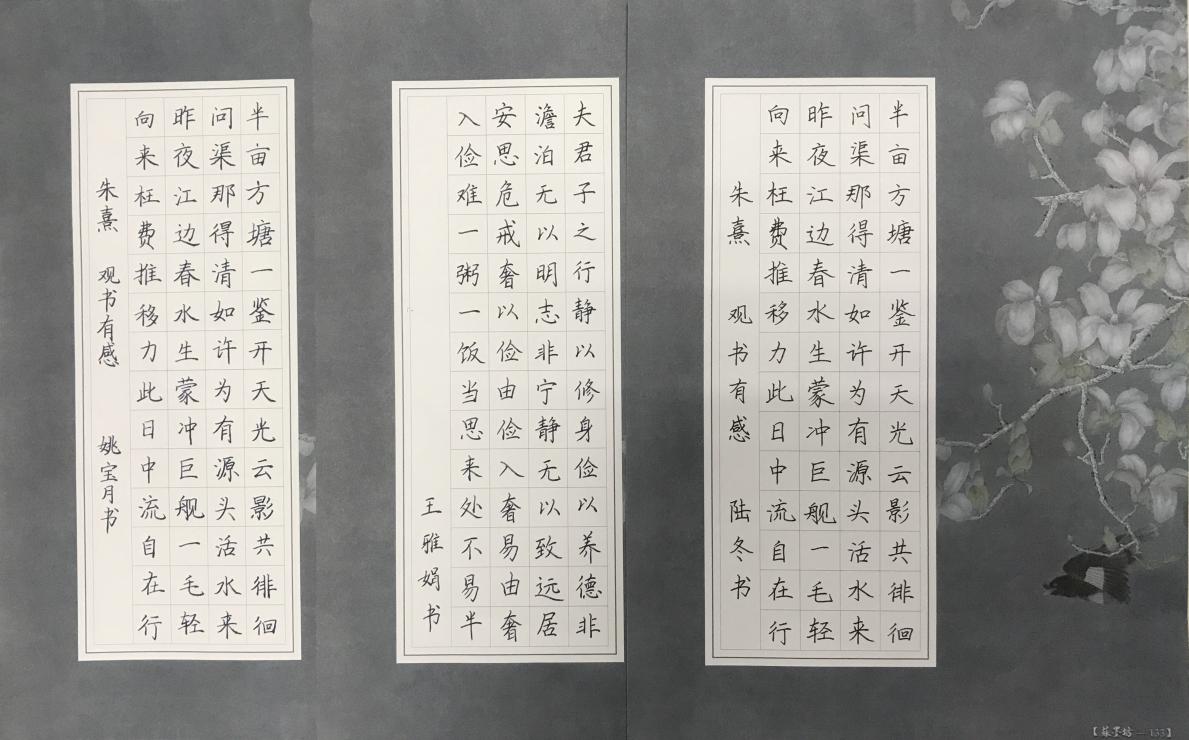 半亩方塘一鉴开天光云影共徘徊
问渠那得清如许为有源头活水来
昨夜江边春水生蒙冲巨舰一毛轻
向来枉费推移力此日中流自在行
朱熹 观书有感 陆冬书
夫君子之行静以修身俭以养德非
澹泊无以明志非宁静无以致远居
安思危戒奢以俭由俭入奢易由奢
入俭难一粥一饭当思来处不易半
王雅娟书
半亩方塘一鉴开天光云影共徘徊
问渠那得清如许为有源头活水来
昨夜江边春水生蒙冲巨舰一毛轻
向来枉费推移力此日中流自在行
朱熹 观书有感 姚宝月书
【蘇墨坊—133】